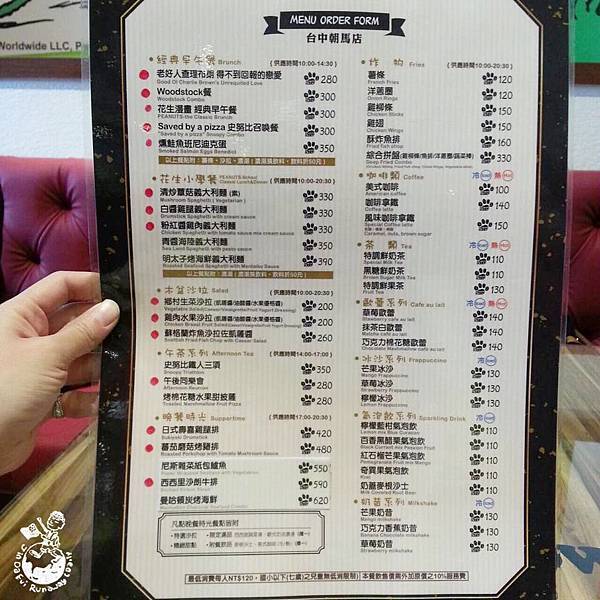 Worldwide LLC, P
MENU ORDER FORM
台中朝馬店
經典早午餐 Brunch (供應時間10:00-14:30)
老好人查理布朗 得不到回報的戀愛 280
Good Ol Charlie Brown's Unrequited Love
Woodstock餐 300
Woodstock Combo
花生漫畫 經典早午餐 300
PEANUTS-the Classic Brunch
Saved by a pizza 史努比召喚餐 300
"Saved by a pizza" Snoopy Combo
燻鮭魚班尼迪克蛋 350
Smoked Salmon Eggs Benedict
花生小學餐 PEANUTS School Classic Lunch&Dinner (供應時間10:00-20:30)
清炒蕈菇義大利麵(素) 330
Mushroom Spaghetti (Vegetarian)
白醬雞腿義大利麵 330
Drumstick Spaghetti with cream sauce
粉紅醬雞肉義大利麵 330
Chicken Spaghetti with tomato sauce mix cream sauce
青醬海陸義大利麵 350
明太子烤海鮮義大利麵 390
Roasted Seafood Spaghetti with Mentaiko Sauce
木盆沙拉 Salad (供應時間10:00-20:30)
鄉村生菜沙拉(凱薩醬/油醋醬/水果優格醬) 200
雞肉水果沙拉(凱薩醬/油醋醬/水果優格醬) 200
蘇格蘭炸魚沙拉佐凱薩醬 200
Scottish Fried Fish Chop with Caesar Salad
午茶系列 Afternoon Tea (供應時間14:00-17:00)
史努比鐵人三項 350
Snoopy Triathlon
午後同樂會 280
Afternoon Reunion
烤棉花糖水果甜披薩 280
Toasted Marshmallow Fruit Pizza
晚餐時光 Suppertime (供應時間17:00-20:30)
日式壽喜雞腿排 420
Sukiyaki Drumstick
蕃茄蘑菇烤豬排 480
Roasted Porkchop with Tomato Mushroom Sauce
尼斯雜菜紙包鱸魚 550
西西里沙朗牛排 590
曼哈頓炭烤海鮮 620
凡點晚餐時光餐皆附
最低消費每人NT$120, 國小以下(七歲)之兒童無低消限制 | 本餐飲售價需外加原價之10%服務費
炸物 Fries (供應時間10:00-20:30)
薯條 120
French Fries
洋蔥圈 120
Onion Rings
雞柳條 150
Chicken Sticks
雞翅 150
Chicken Wings
酥炸魚排 150
Fried fish chop
綜合拼盤(雞柳條/魚排/洋蔥圈/蔬菜棒) 330
Deep Fried Combo
咖啡類 Coffee 冷 熱
美式咖啡 100
American coffee
咖啡拿鐵 140
Coffee latte
風味咖啡拿鐵 150
Special Coffee latte
Caramel, nuts, brown sugar
茶類 Tea 冷 熱
特調鮮奶茶 110
Special Milk Tea
黑糖鮮奶茶 110
Brown Sugar Milk Tea
特調鮮果茶 110
Fruit Tea
歐蕾系列 Cafe au lait 冷 熱
草莓歐蕾 140
Strawberry cafe au lait
抹茶歐蕾 140
Matcha cafe au lait
巧克力棉花糖歐蕾 140
Chocolate Mashmallow cafe au lait
冰沙系列 Frappuccino 冷
芒果冰沙 130
Mango Frappuccino
草莓冰沙 130
Strawberry Frappuccino
檸檬冰沙 130
Lemon Frappuccino
氣泡飲系列 Sparkling Drink 冷
檸檬藍柑氣泡飲 110
Lemon mix Blue Curacao
百香黑醋栗氣泡飲 110
紅石榴芒果氣泡飲 110
Pomegranate Fruit mix Mango
奇異果氣泡飲 110
Kiwi
奶蓋麥根沙士 110
Milk Covered Root Beer
奶昔系列 Milkshake 冷
芒果奶昔 130
Mango milkshake
巧克力香蕉奶昔 130
Banana Chocolate milkshake
草莓奶昔 130
Strawberry milkshake